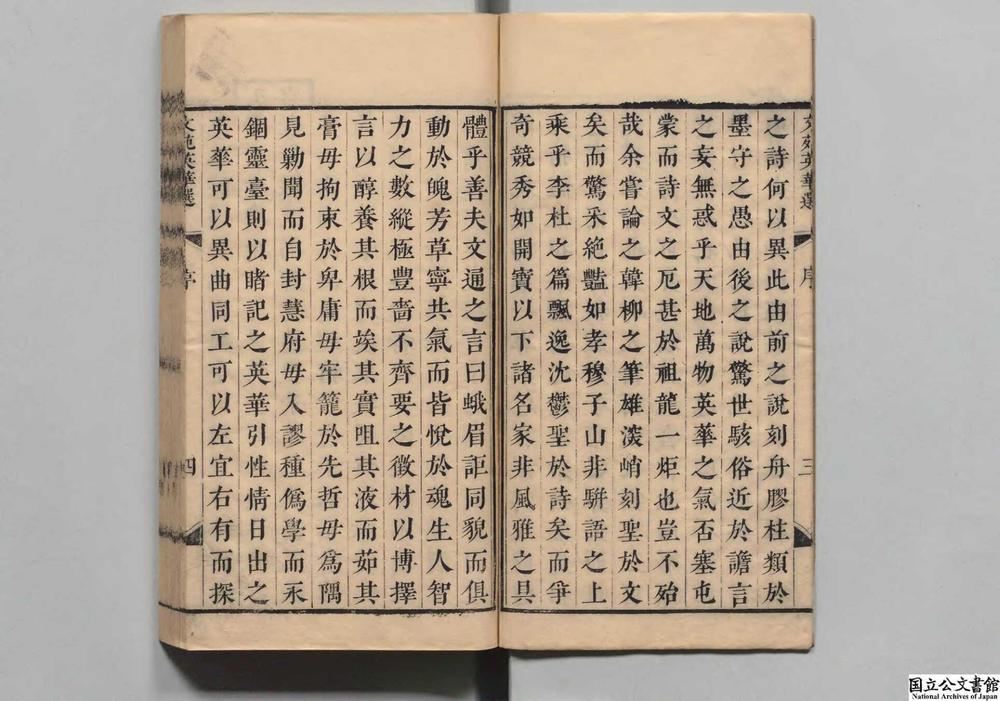 文苑英華選 序 三
之詩何以異此由前之說刻舟膠柱類於
墨守之愚由後之說驚世駭俗近於譫言
之妄無惑乎天地萬物英華之氣否塞屯
蒙而詩文之厄甚於祖龍一炬也豈不殆
哉余嘗論之韓柳之筆雄深峭刻聖於文
矣而驚采絕豔如孝穆子山非駢語之上
乘乎李杜之篇飄逸沈鬱聖於詩矣而爭
奇競秀如開寶以下諸名家非風雅之具
體乎善夫文通之言曰蛾眉詎同貌而俱
動於魄芳草寧共氣而皆悅於魂生人智
力之數縱極豐嗇不齊要之徵材以博擇
言以醇養其根而竢其實咀其液而茹其
膏毋拘束於卑庸毋牢籠於先哲毋為隅
見勦聞而自封慧府毋入謬種僞學而永
錮靈臺則以睹記之英華引性情日出之
英華可以異曲同工可以左宜右有而探
文苑英華選 序 四
国立公文書館
National Archives of Japan